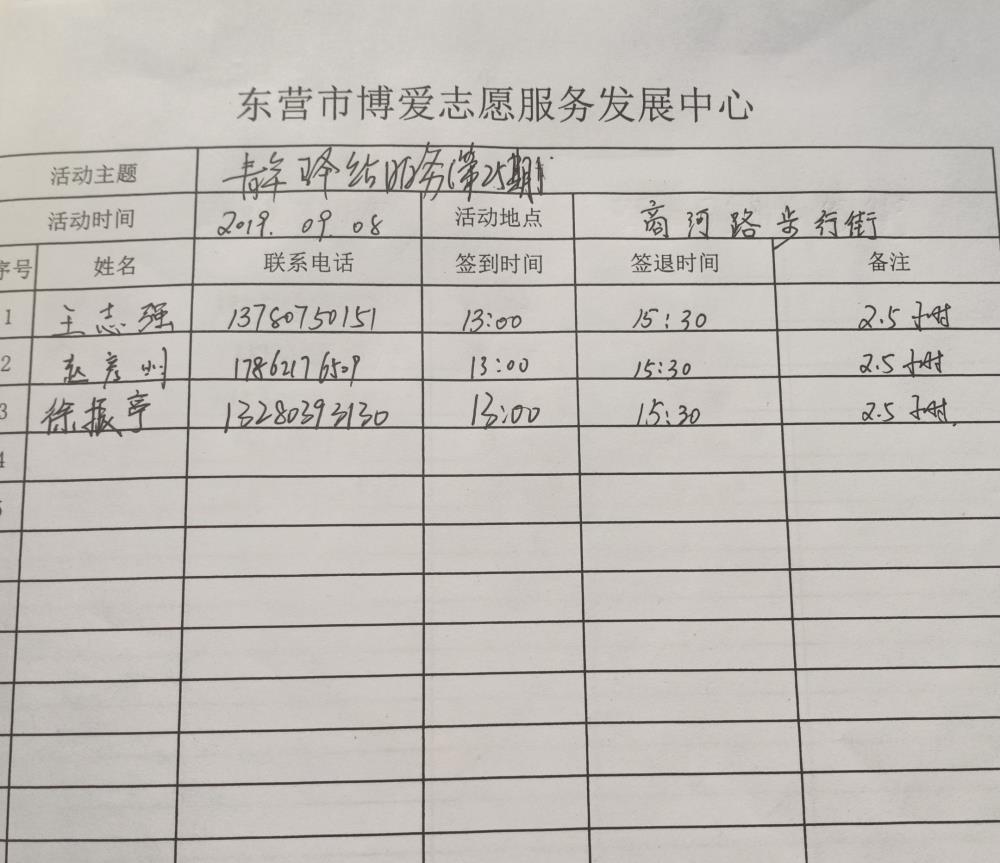 东营市博爱志愿服务发展中心
活动主题 青年驿站服务(第25期)
活动时间 2019.09.08 活动地点 商河路步行街
序号 姓名 联系电话 签到时间 签退时间 备注
1 王志强 13780750151 13:00 15:30 2.5小时
2 赵彦州 17862176509 13:00 15:30 2.5小时
3 徐振亭 13280393130 13:00 15:30 2.5小时.
4
5